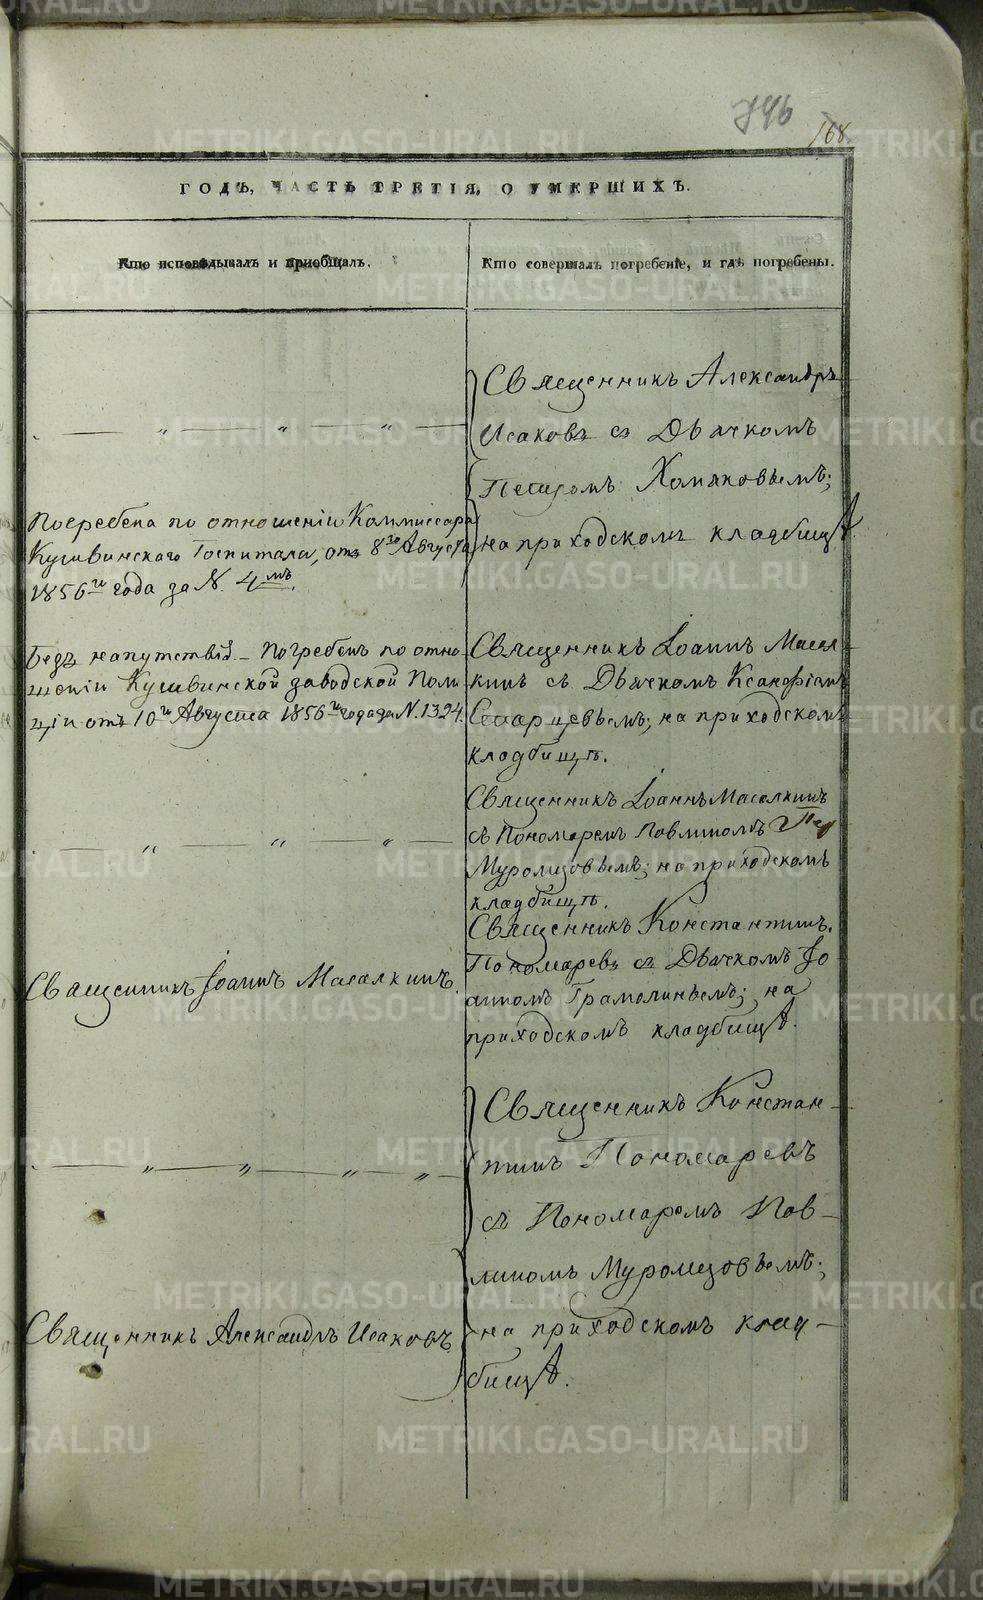 746
168.
ГОДЪ, ЧАСТЬ ТРЕТІЯ, О УМЕРШИХЪ.
Кто исповѣдывалъ и приобщалъ.
Кто совершалъ погребеніе, и гдѣ погребены.
Священникъ Александръ
Исаковъ съ Дьячкомъ
Петромъ Хомяковымъ;
на приходскомъ кладбищѣ.
Погребена по отношенію Коммиссара
Кушвинскаго Госпиталя, отъ 8го Августа
1856го года за N. 4мъ.
Безъ напутствія. Погребенъ по отно-
шенію Кушвинской заводской Поли
ціи отъ 10го Августа 1856го года за N. 1324.
Священникъ Іоаннъ Масал-
кинъ съ Дьячкомъ Ксанофіемъ
Старцевымъ; на приходскомъ
кладбищѣ.
Священникъ Іоаннъ Масалкинъ
съ Пономаремъ Павлиномъ
Муромцовымъ; на приходскомъ
кладбищѣ.
Священникъ Іоаннъ Масалкинъ.
Священникъ Константинъ
Пономаревъ съ Дьячкомъ Іо
анномъ Грамолинымъ; на
приходскомъ кладбищѣ.
Священникъ Констан-
тинъ Пономаревъ
съ Пономаремъ Пав-
линомъ Муромцовымъ;
на приходскомъ клад-
бищѣ.
Священникъ Александръ Исаковъ
METRIKI.GASO-URAL.RU